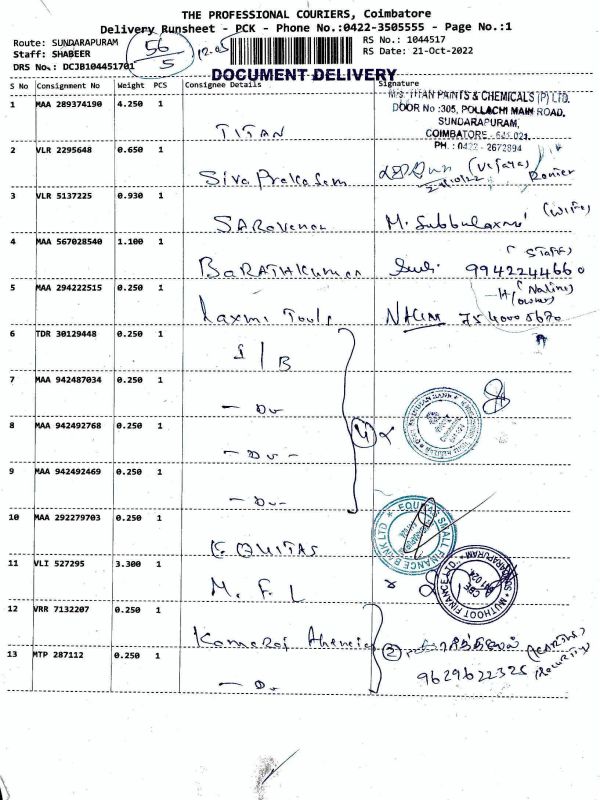 THE PROFESSIONAL COURIERS, Coimbatore
Delivery Runsheet - PCK - Phone No.:0422-3505555 - Page No.:1
Route: SUNDARAPURAM
Staff: SHABEER
DRS No.: DCJB104451701
56
5
RS No.: 1044517
RS Date: 21-Oct-2022
DOCUMENT DELIVERY
S No Consignment No Weight PCS Consignee Details Signature
1 MAA 289374190 4.250 1 TITAN
M/s. TITAN PAINTS & CHEMICALS (P) LTD.
DOOR No :305, POLLACHI MAIN ROAD,
SUNDARAPURAM,
COIMBATORE - 641 021.
PH. : 0422 - 2672894
2 VLR 2295648 0.650 1 Siva Prakasam
3 VLR 5137225 0.930 1 SARavanan M. Subbulaxmi (Wife)
4 MAA 567028540 1.100 1 BARATHKumar 9942244660 (Staff)
5 MAA 294222515 0.250 1 Laxmi Tools (owner)
6 TDR 30129448 0.250 1 I/B
7 MAA 942487034 0.250 1 - Do -
8 MAA 942492768 0.250 1 - Do - 4
9 MAA 942492469 0.250 1 - Do -
10 MAA 292279703 0.250 1 EQUITAS
EQUITAS SMALL FINANCE BANK LTD
11 VLI 527295 3.300 1 M. F. L
MUTHOOT FINANCE LTD. SUNDARAPURAM
12 VRR 7132207 0.250 1 Kamaraj 2
13 MTP 287112 0.250 1 - Do 9629622325